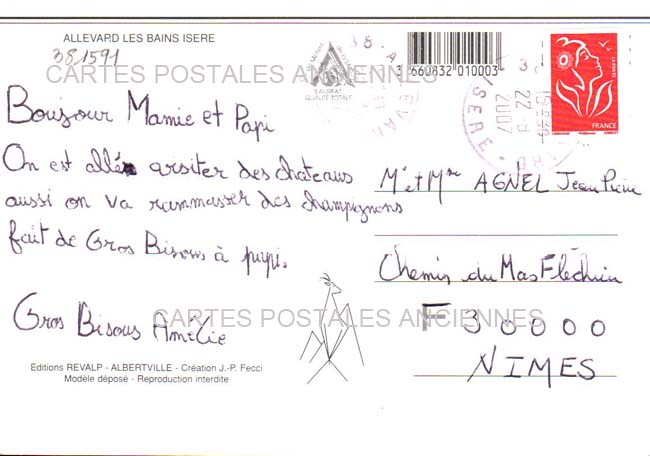 ALLEVARD LES BAINS ISERE
381591
CARTES POSTALES ANCIENNES
3 660832 010003
Boujour Mamie et Papi
On est allé arsiter des chateaus
aussi on va rammaster des champignons
fait de Gros Bisous à pupi.
Gros Bisous Amélie
Mr et Mme AGNEL Jean Pierre
Chemin du Mas Fléchier
F 30000
NIMES
CARTES POSTALES ANCIENNES
Editions REVALP - ALBERTVILLE - Création J.-P. Fecci
Modèle déposé - Reproduction interdite
QUALITÉ TOTALE
LA POSTE
FRANCE
ISERE
22
2007